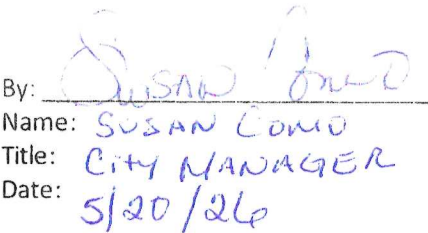 By: Susan Como
Name: SUSAN COMO
Title: City MANAGER
Date: 5/20/26